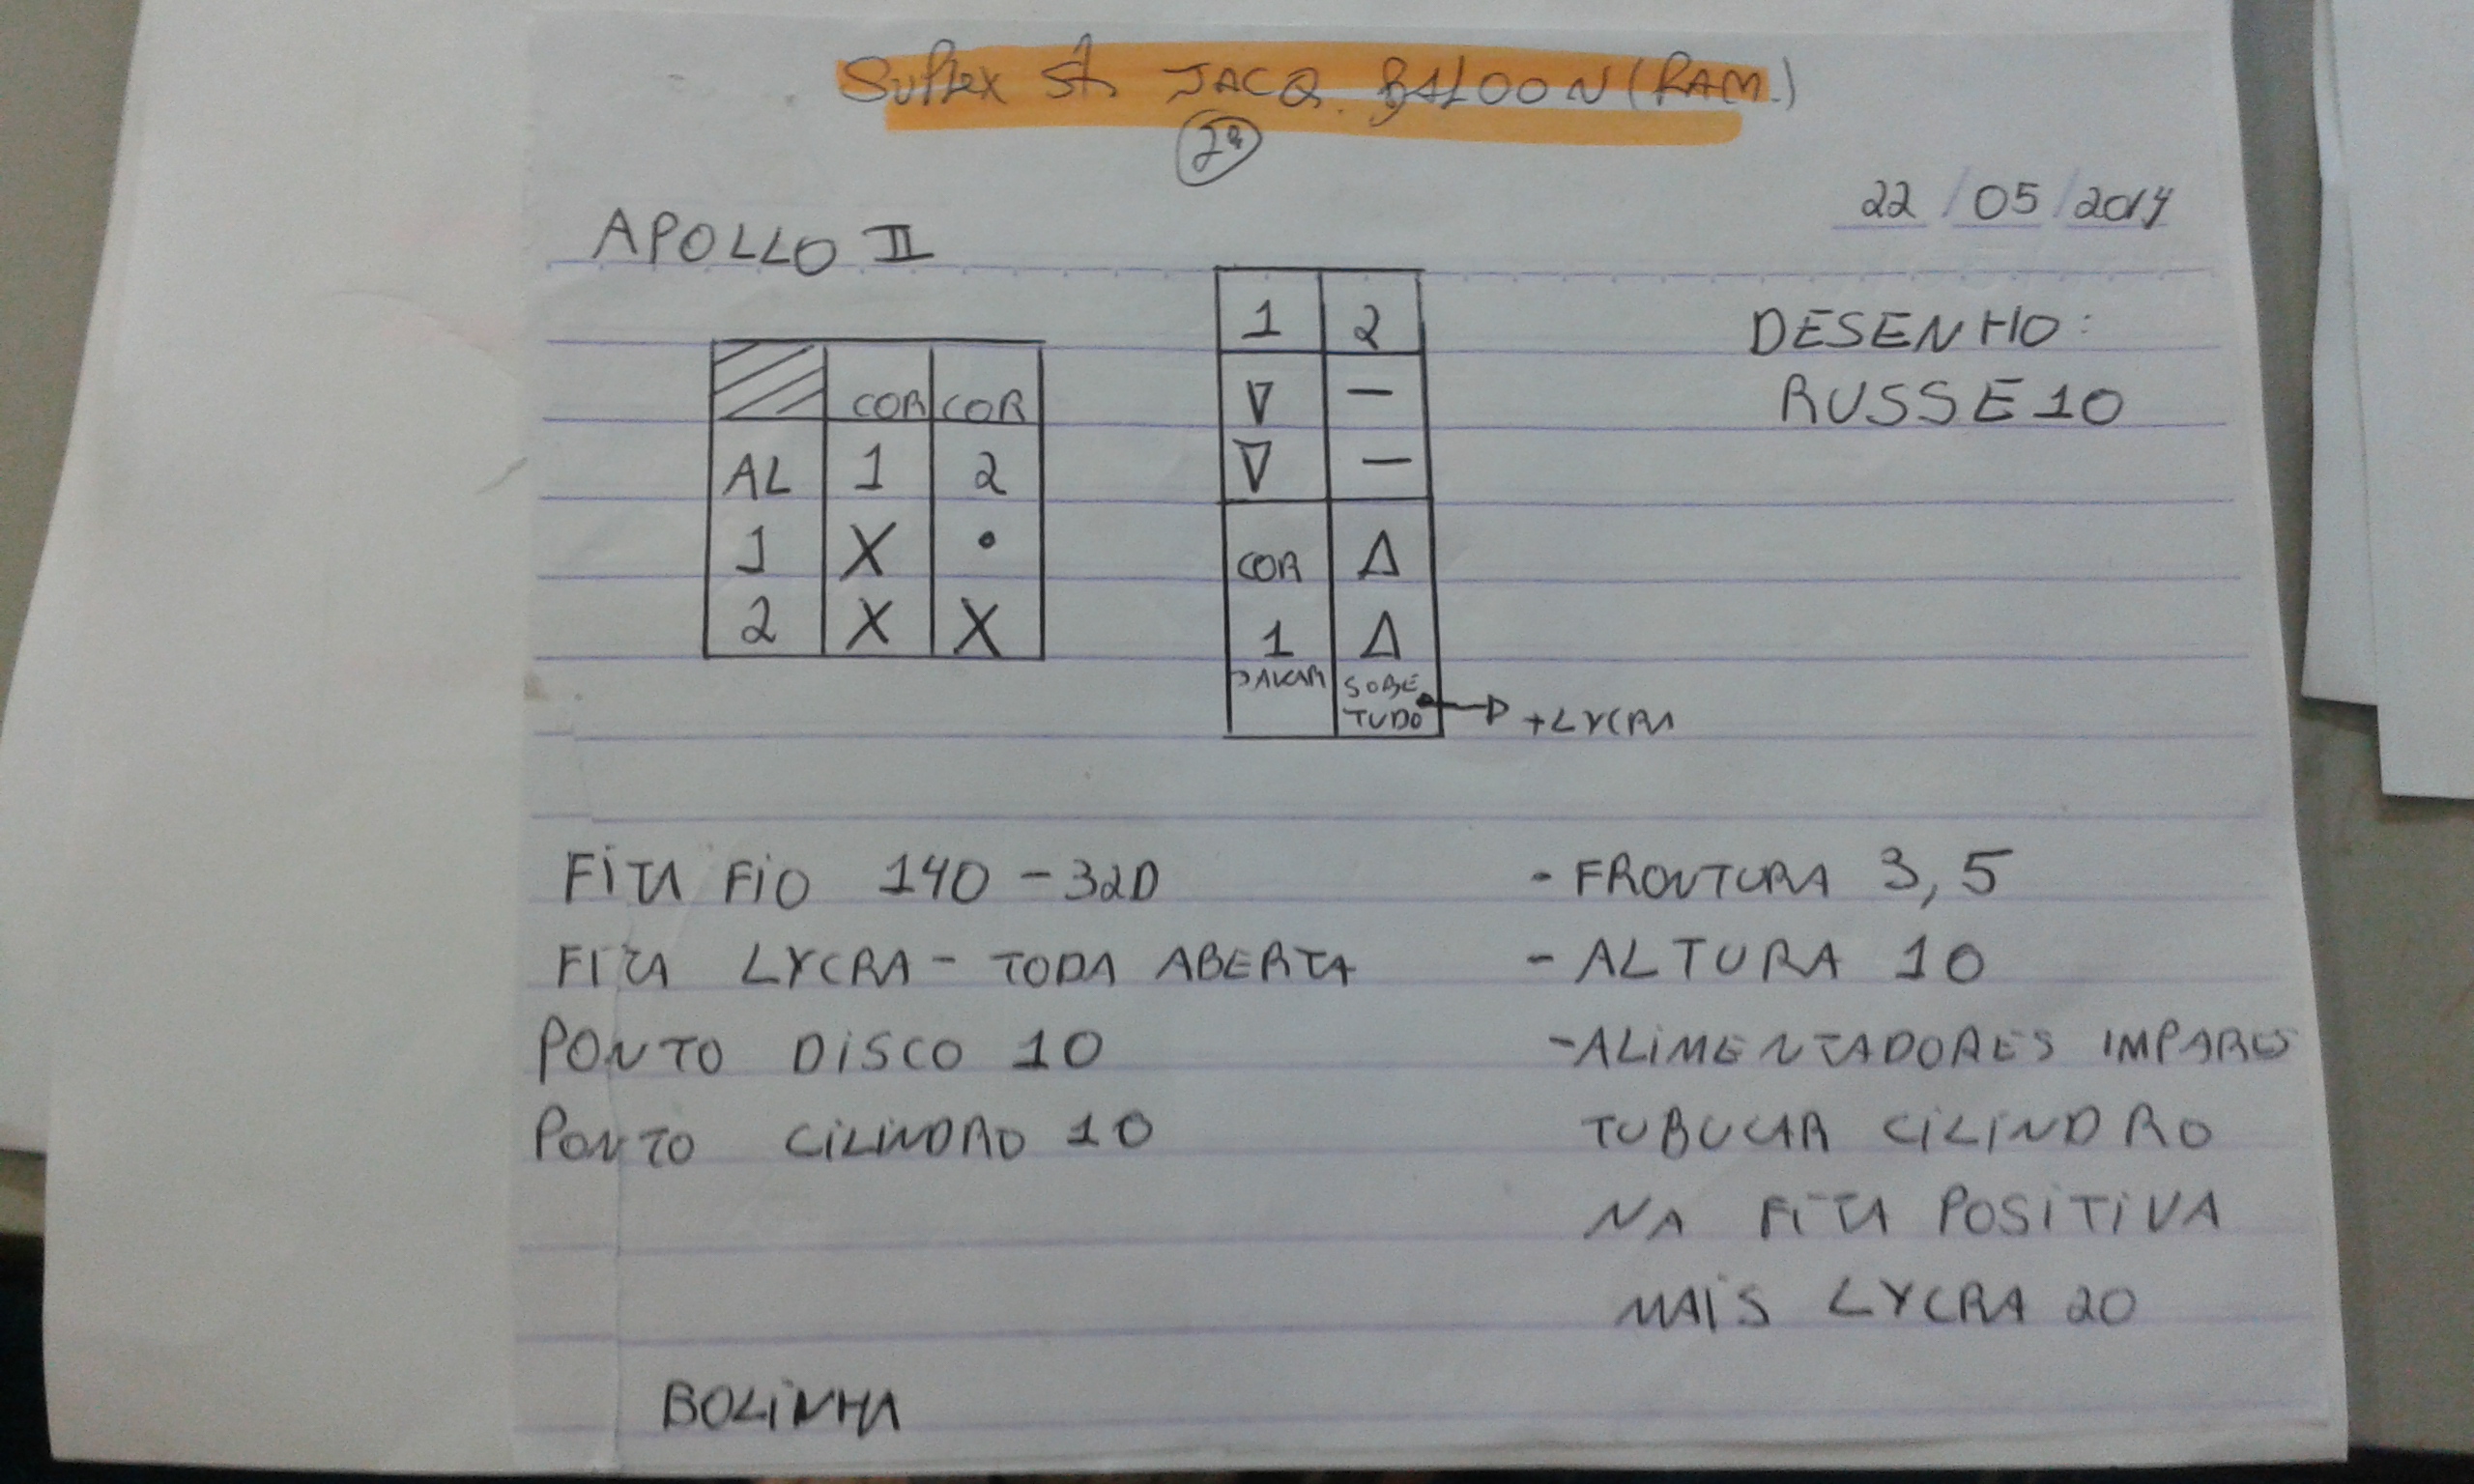 Suplex St. JACQ. BALOON (RAM.)
22/05/2014
APOLLO II
COR COR
AL 1 2
1 X •
2 X X
1 2
∇ —
∇ —
COR Δ
1 Δ
SOBE
TUDO → +LYCRA
DESENHO:
RUSSE10
FITA FIO 140 - 32D
FITA LYCRA - TODA ABERTA
PONTO DISCO 10
PONTO CILINDRO 10
- FRONTURA 3,5
- ALTURA 10
- ALIMENTADORES IMPARES
TUBULAR CILINDRO
NA FITA POSITIVA
MAIS LYCRA 20
BOLINHA